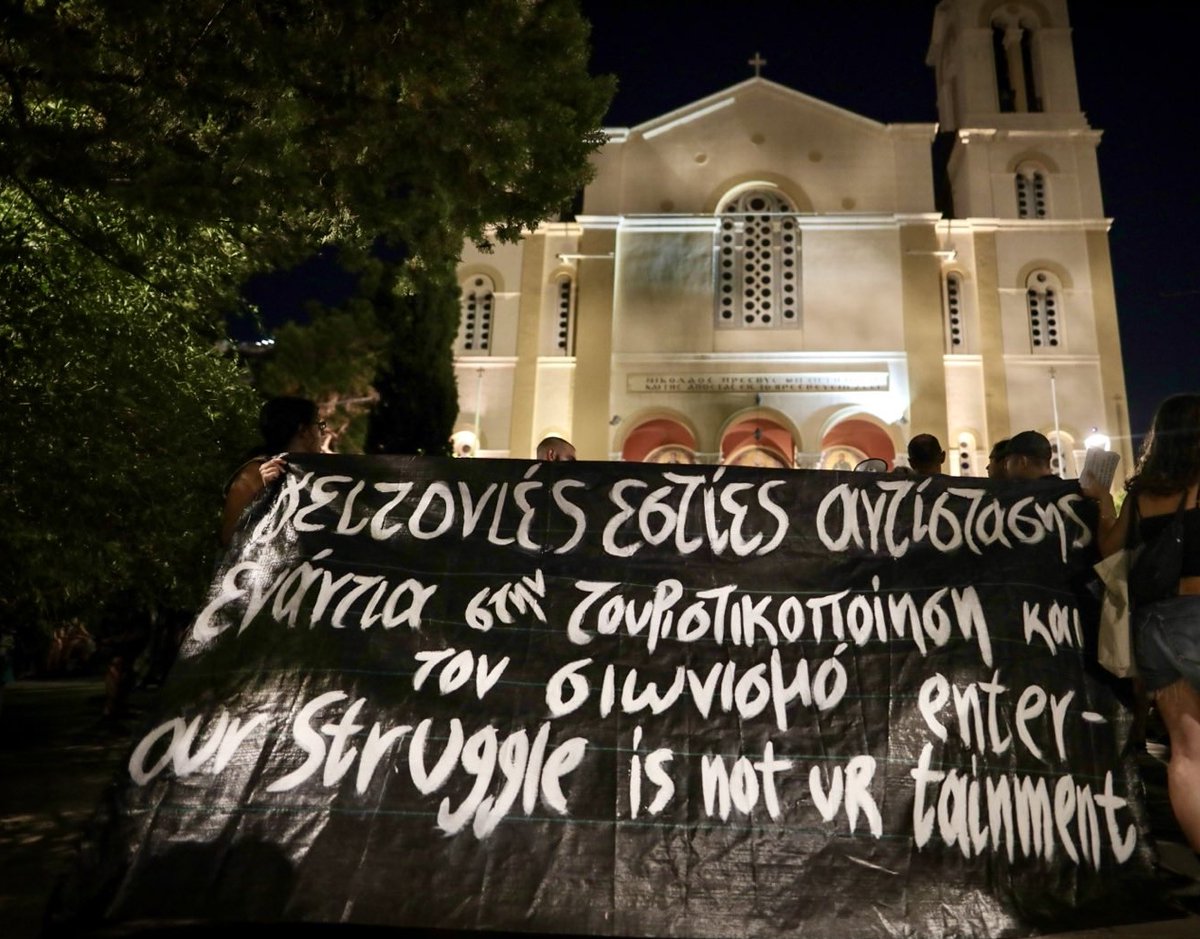 ΝΙΚΟΛΑΟΣ ΠΡΕΣΒΥΣ
γειτονιές εστίες αντίστασης
ενάντια στην τουριστικοποίηση και
τον σιωνισμό
our Struggle is not uR enter-
tainment